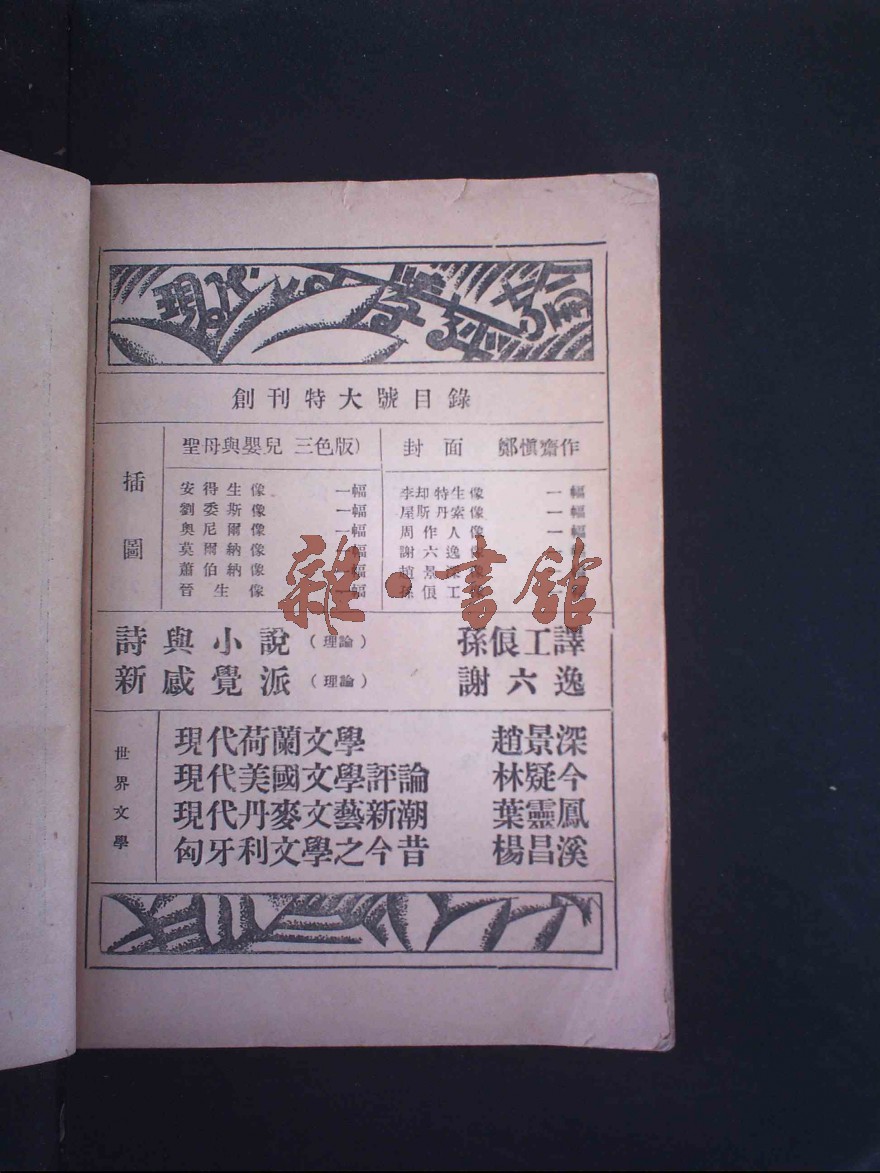 現代文學評論
創刊特大號目錄
插圖
聖母與嬰兒 三色版)
封面 鄭慎齋作
安得生像 一幅
劉委斯像 一幅
奧尼爾像 一幅
莫爾納像 一幅
蕭伯納像 一幅
晉生像 一幅
李却特生像 一幅
屋斯丹索像 一幅
周作人像 一幅
謝六逸像
趙景深像
孫俍工像
雜·書館
詩與小說(理論) 孫俍工譯
新感覺派(理論) 謝六逸
世界文學
現代荷蘭文學 趙景深
現代美國文學評論 林疑今
現代丹麥文藝新潮 葉靈鳳
匈牙利文學之今昔 楊昌溪